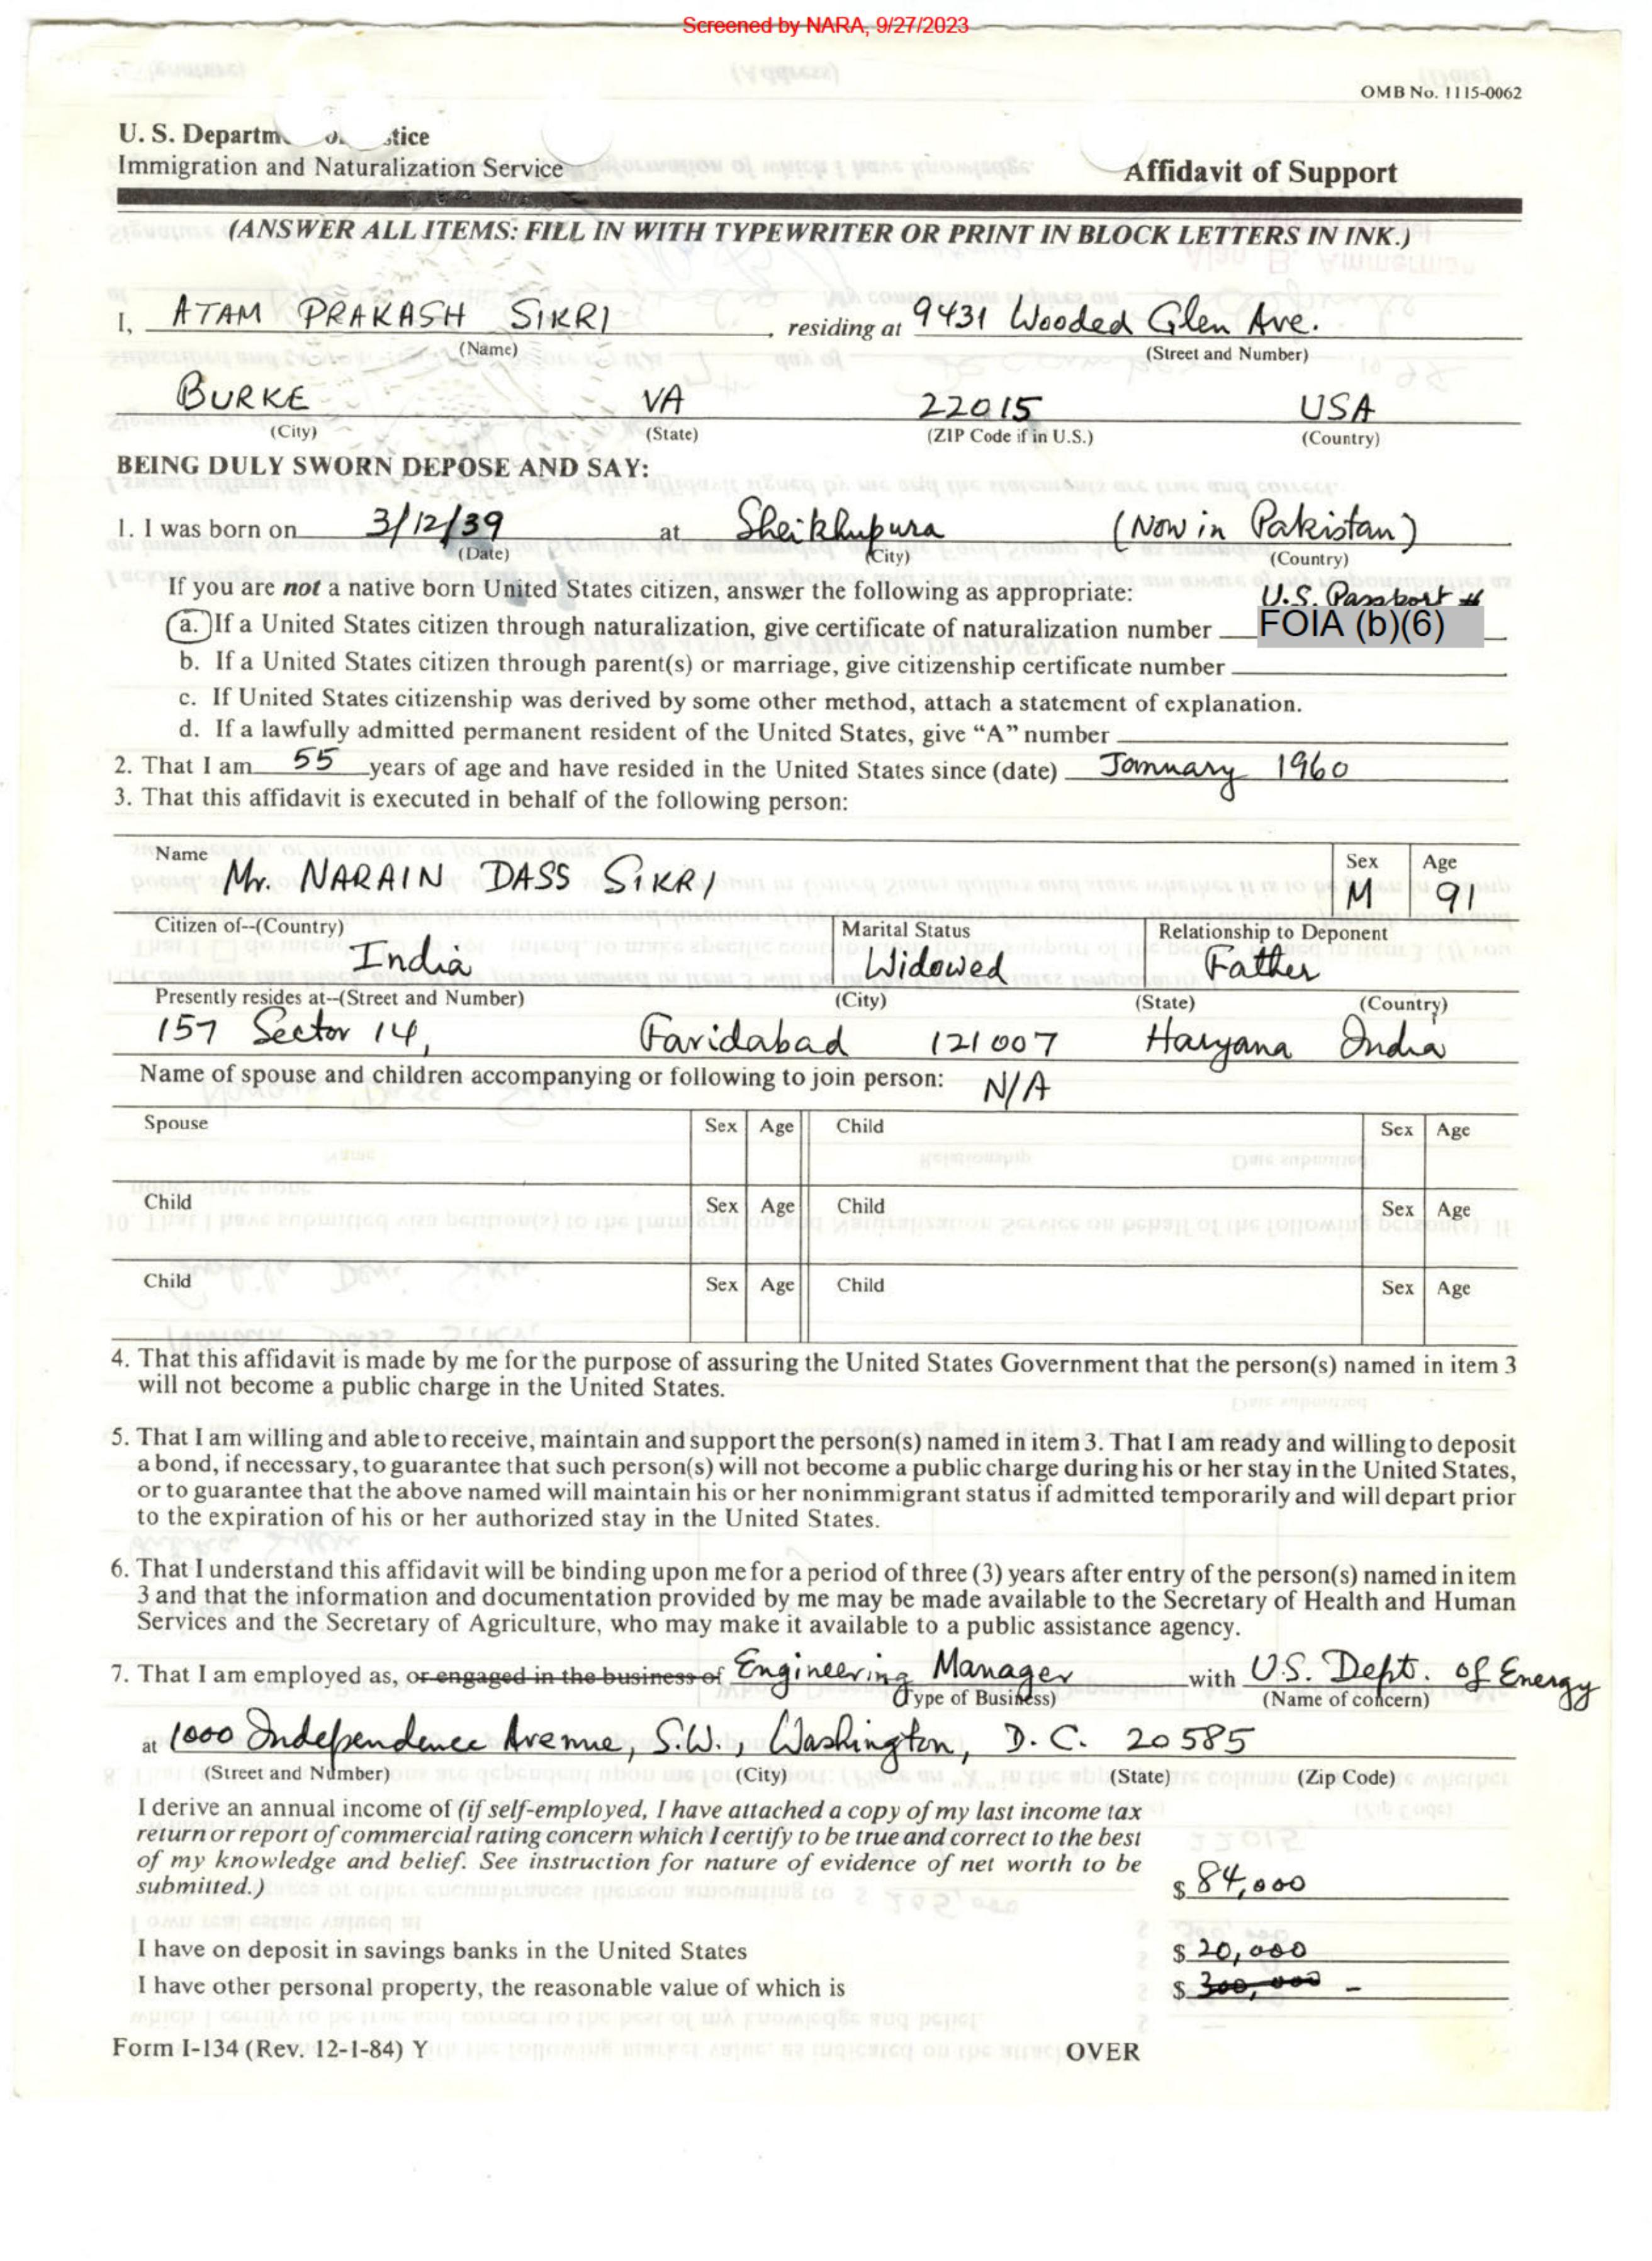 Screened by NARA, 9/27/2023
OMB No. 1115-0062
U. S. Departm stice
Immigration and Naturalization Service
Affidavit of Support
(ANSWER ALL ITEMS: FILL IN WITH TYPEWRITER OR PRINT IN BLOCK LETTERS IN INK.)
I, ATAM PRAKASH SIKRI, residing at 9431 Wooded Glen Ave.
(Name) (Street and Number)
BURKE VA 22015 USA
(City) (State) (ZIP Code if in U.S.) (Country)
BEING DULY SWORN DEPOSE AND SAY:
1. I was born on 3/12/39 at Sheikhupura (Now in Pakistan)
(Date) (City) (Country)
If you are not a native born United States citizen, answer the following as appropriate: U.S. Passport #
a. If a United States citizen through naturalization, give certificate of naturalization number FOIA (b)(6)
b. If a United States citizen through parent(s) or marriage, give citizenship certificate number
c. If United States citizenship was derived by some other method, attach a statement of explanation.
d. If a lawfully admitted permanent resident of the United States, give "A" number
2. That I am 55 years of age and have resided in the United States since (date) January 1960
3. That this affidavit is executed in behalf of the following person:
Name Sex Age
Mr. NARAIN DASS SIKRI M 91
Citizen of--(Country) Marital Status Relationship to Deponent
India Widowed Father
Presently resides at--(Street and Number) (City) (State) (Country)
157 Sector 14, Faridabad 121007 Haryana India
Name of spouse and children accompanying or following to join person: N/A
Spouse Sex Age Child Sex Age
Child Sex Age Child Sex Age
Child Sex Age Child Sex Age
4. That this affidavit is made by me for the purpose of assuring the United States Government that the person(s) named in item 3
will not become a public charge in the United States.
5. That I am willing and able to receive, maintain and support the person(s) named in item 3. That I am ready and willing to deposit
a bond, if necessary, to guarantee that such person(s) will not become a public charge during his or her stay in the United States,
or to guarantee that the above named will maintain his or her nonimmigrant status if admitted temporarily and will depart prior
to the expiration of his or her authorized stay in the United States.
6. That I understand this affidavit will be binding upon me for a period of three (3) years after entry of the person(s) named in item
3 and that the information and documentation provided by me may be made available to the Secretary of Health and Human
Services and the Secretary of Agriculture, who may make it available to a public assistance agency.
7. That I am employed as, or engaged in the business of Engineering Manager with U.S. Dept. of Energy
(Type of Business) (Name of concern)
at 1000 Independence Avenue, S.W., Washington, D.C. 20585
(Street and Number) (City) (State) (Zip Code)
I derive an annual income of (if self-employed, I have attached a copy of my last income tax
return or report of commercial rating concern which I certify to be true and correct to the best
of my knowledge and belief. See instruction for nature of evidence of net worth to be
submitted.) $ 84,000
I have on deposit in savings banks in the United States $ 20,000
I have other personal property, the reasonable value of which is $ 300,000 -
Form I-134 (Rev. 12-1-84) Y OVER